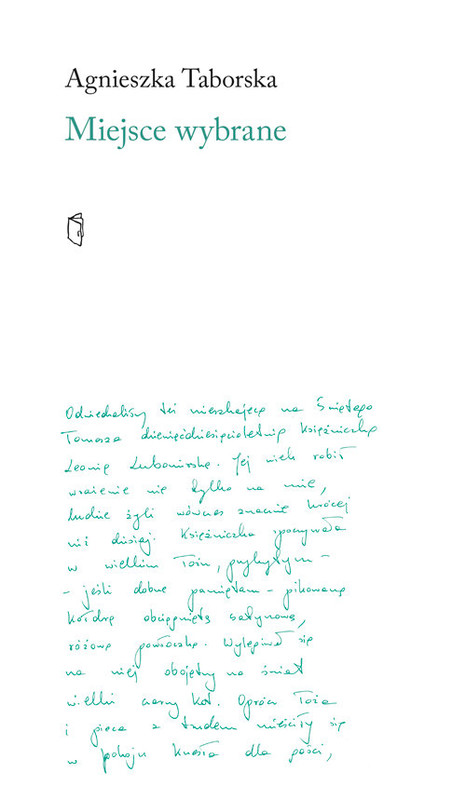 Agnieszka Taborska
Miejsce wybrane
Odwiedzaliśmy też mieszkającą na Świętego
Tomasza dziewięćdziesięcioletnią Księżniczkę
Leonię Lubomirską. Jej wiek robił
wrażenie nie tylko na mnie,
ludzie żyli wówczas znacznie krócej
niż dzisiaj. Księżniczka spoczywała
w wielkim łożu, przykrytym -
- jeśli dobrze pamiętam - pikowaną
kołdrą obciągniętą satynową,
różową powłoczką. Wylegiwał się
na niej obojętny na świat
wielki czarny kot. Oprócz łoża
i pieca z trudem mieściły się
w pokoju krzesła dla gości,